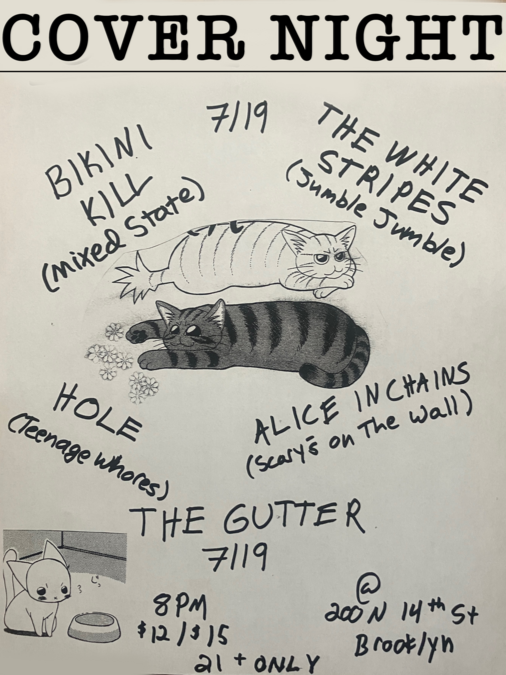 COVER NIGHT
7/19
BIKINI
KILL
(Mixed State)
THE WHITE
STRIPES
(Jumble Jumble)
HOLE
(Teenage Whores)
ALICE IN CHAINS
(Scary's on The Wall)
THE GUTTER
7/19
8PM
$12/$15
21+ ONLY
@
200 N 14th St
Brooklyn